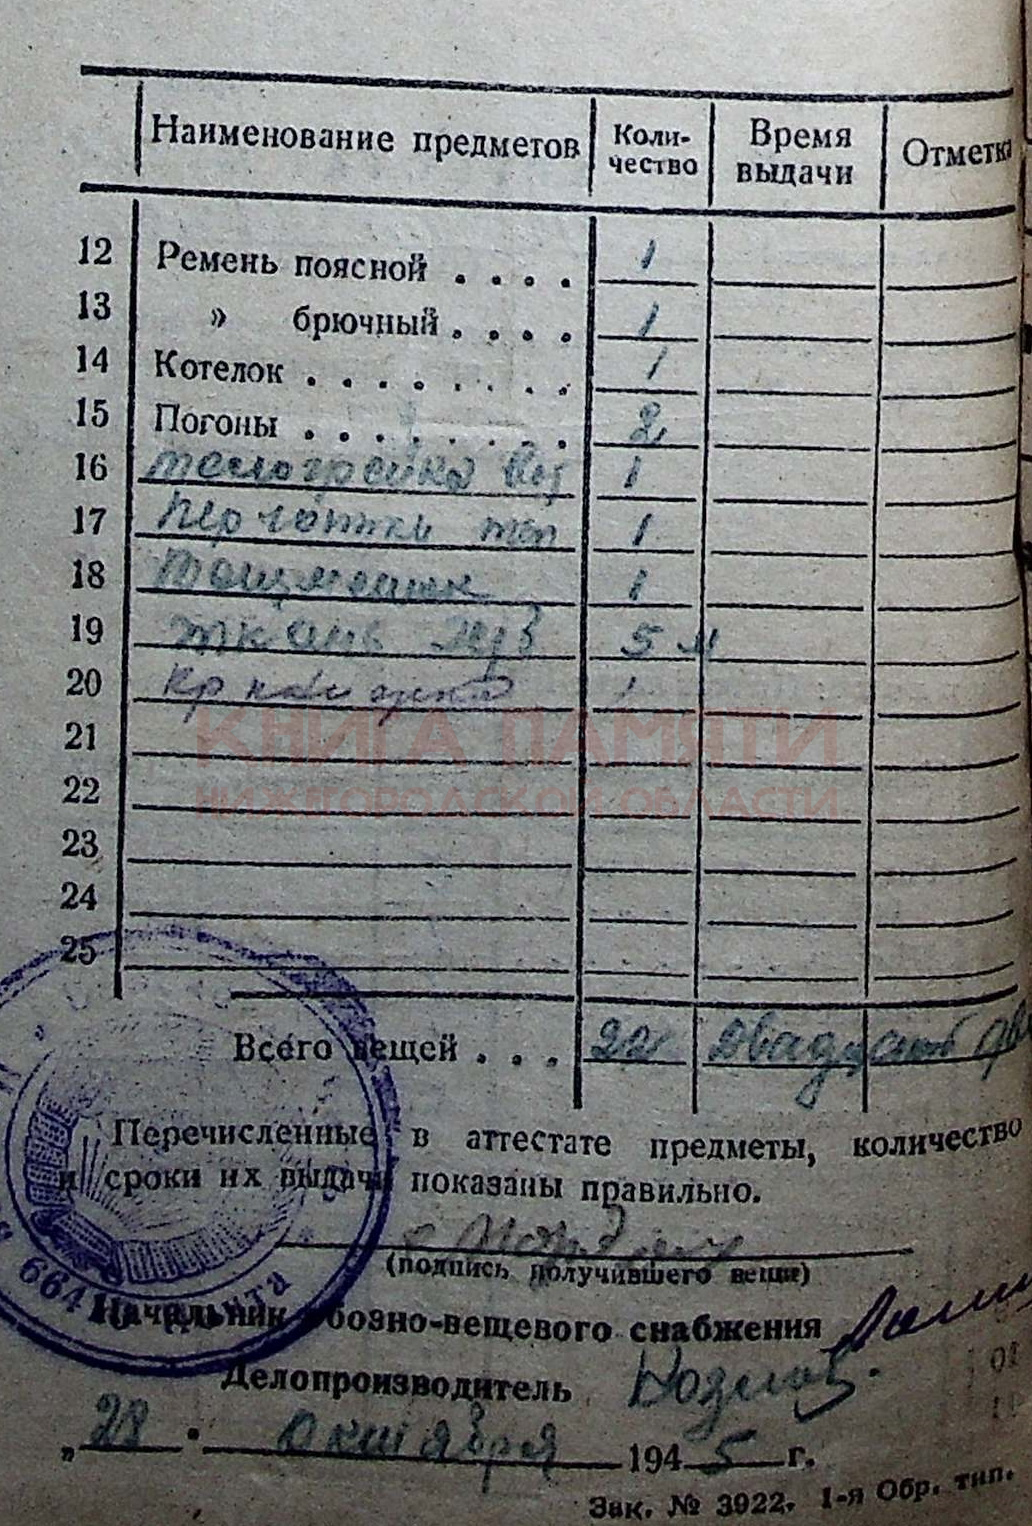 Наименование предметов Коли- Время Отметка
чество выдачи
12 Ремень поясной . . . . 1
13 » брючный . . . . 1
14 Котелок . . . . . . . . 1
15 Погоны . . . . . . . . 2
16 телогрейка 1
17 перчатки теп 1
18 1
19 ткань 5 м
20 Кр 1
КНИГА ПАМЯТИ
21
НИЖЕГОРОДСКОЙ ОБЛАСТИ
22
23
24
25
Всего вещей . . . 22 Двадцать два
Перечисленные в аттестате предметы, количество
и сроки их выдачи показаны правильно.
(подпись получившего вещи)
Начальник обозно-вещевого снабжения
Делопроизводитель Козлов
„ 28 " октября 194 5 г.
Зак. № 3922. 1-я Обр. тип.